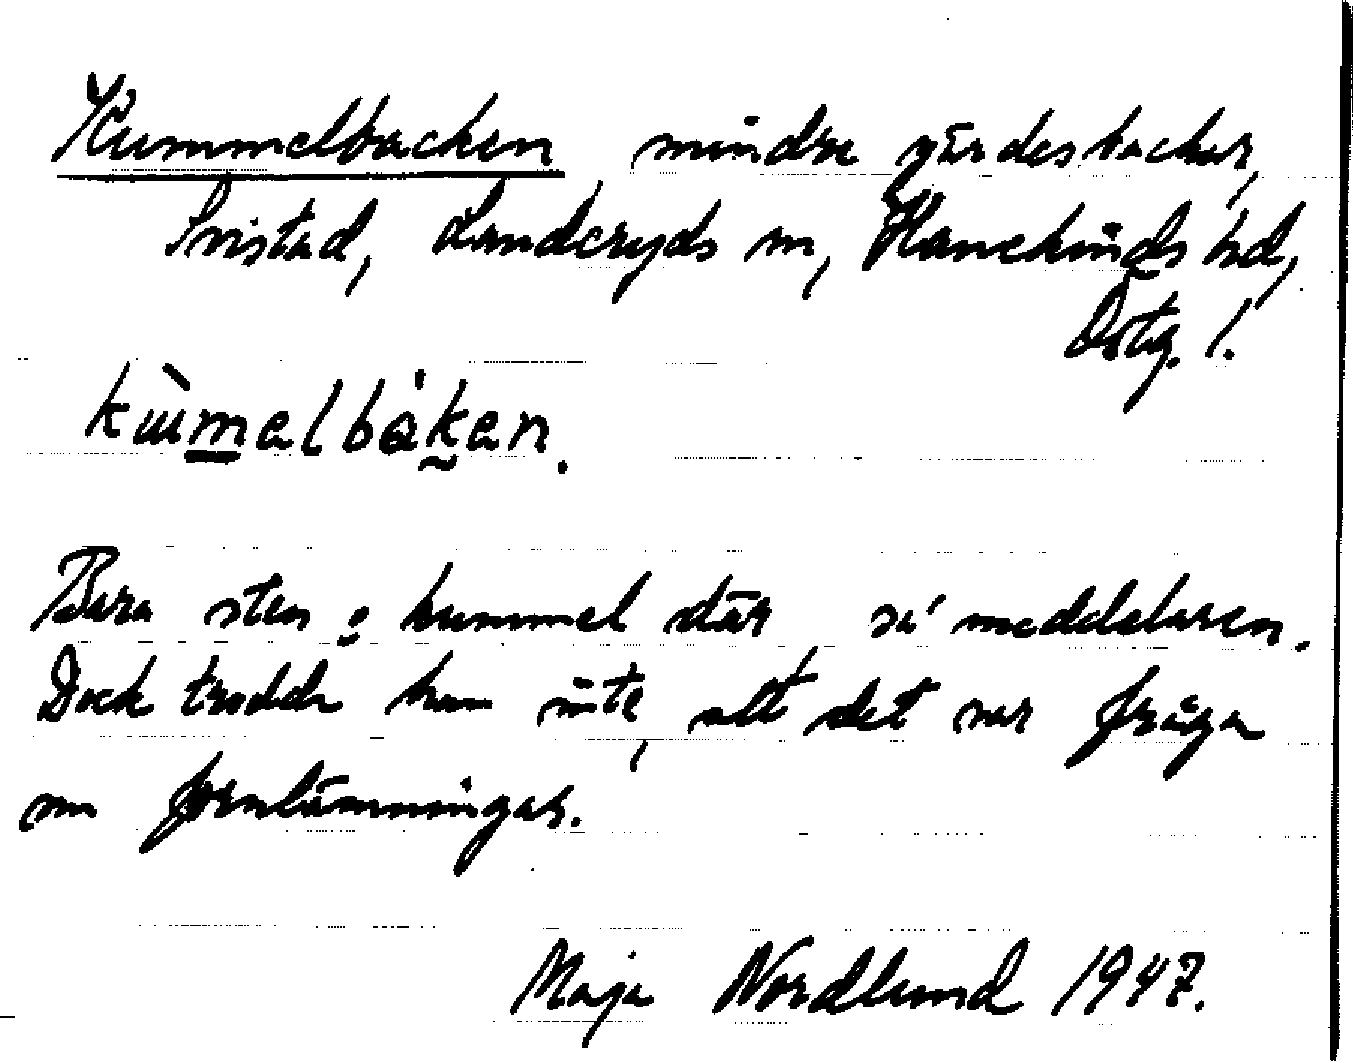 Kummelbacken mindre gärdesbackar,
Svistad, Landeryds sn, Hanekinds hd,
Östg. l.
kùmelbákan.
Bara sten o kummel där, sa' meddelaren.
Dock trodde han inte, att det var fråga
om fornlämningar.
Maja Nordlund 1947.